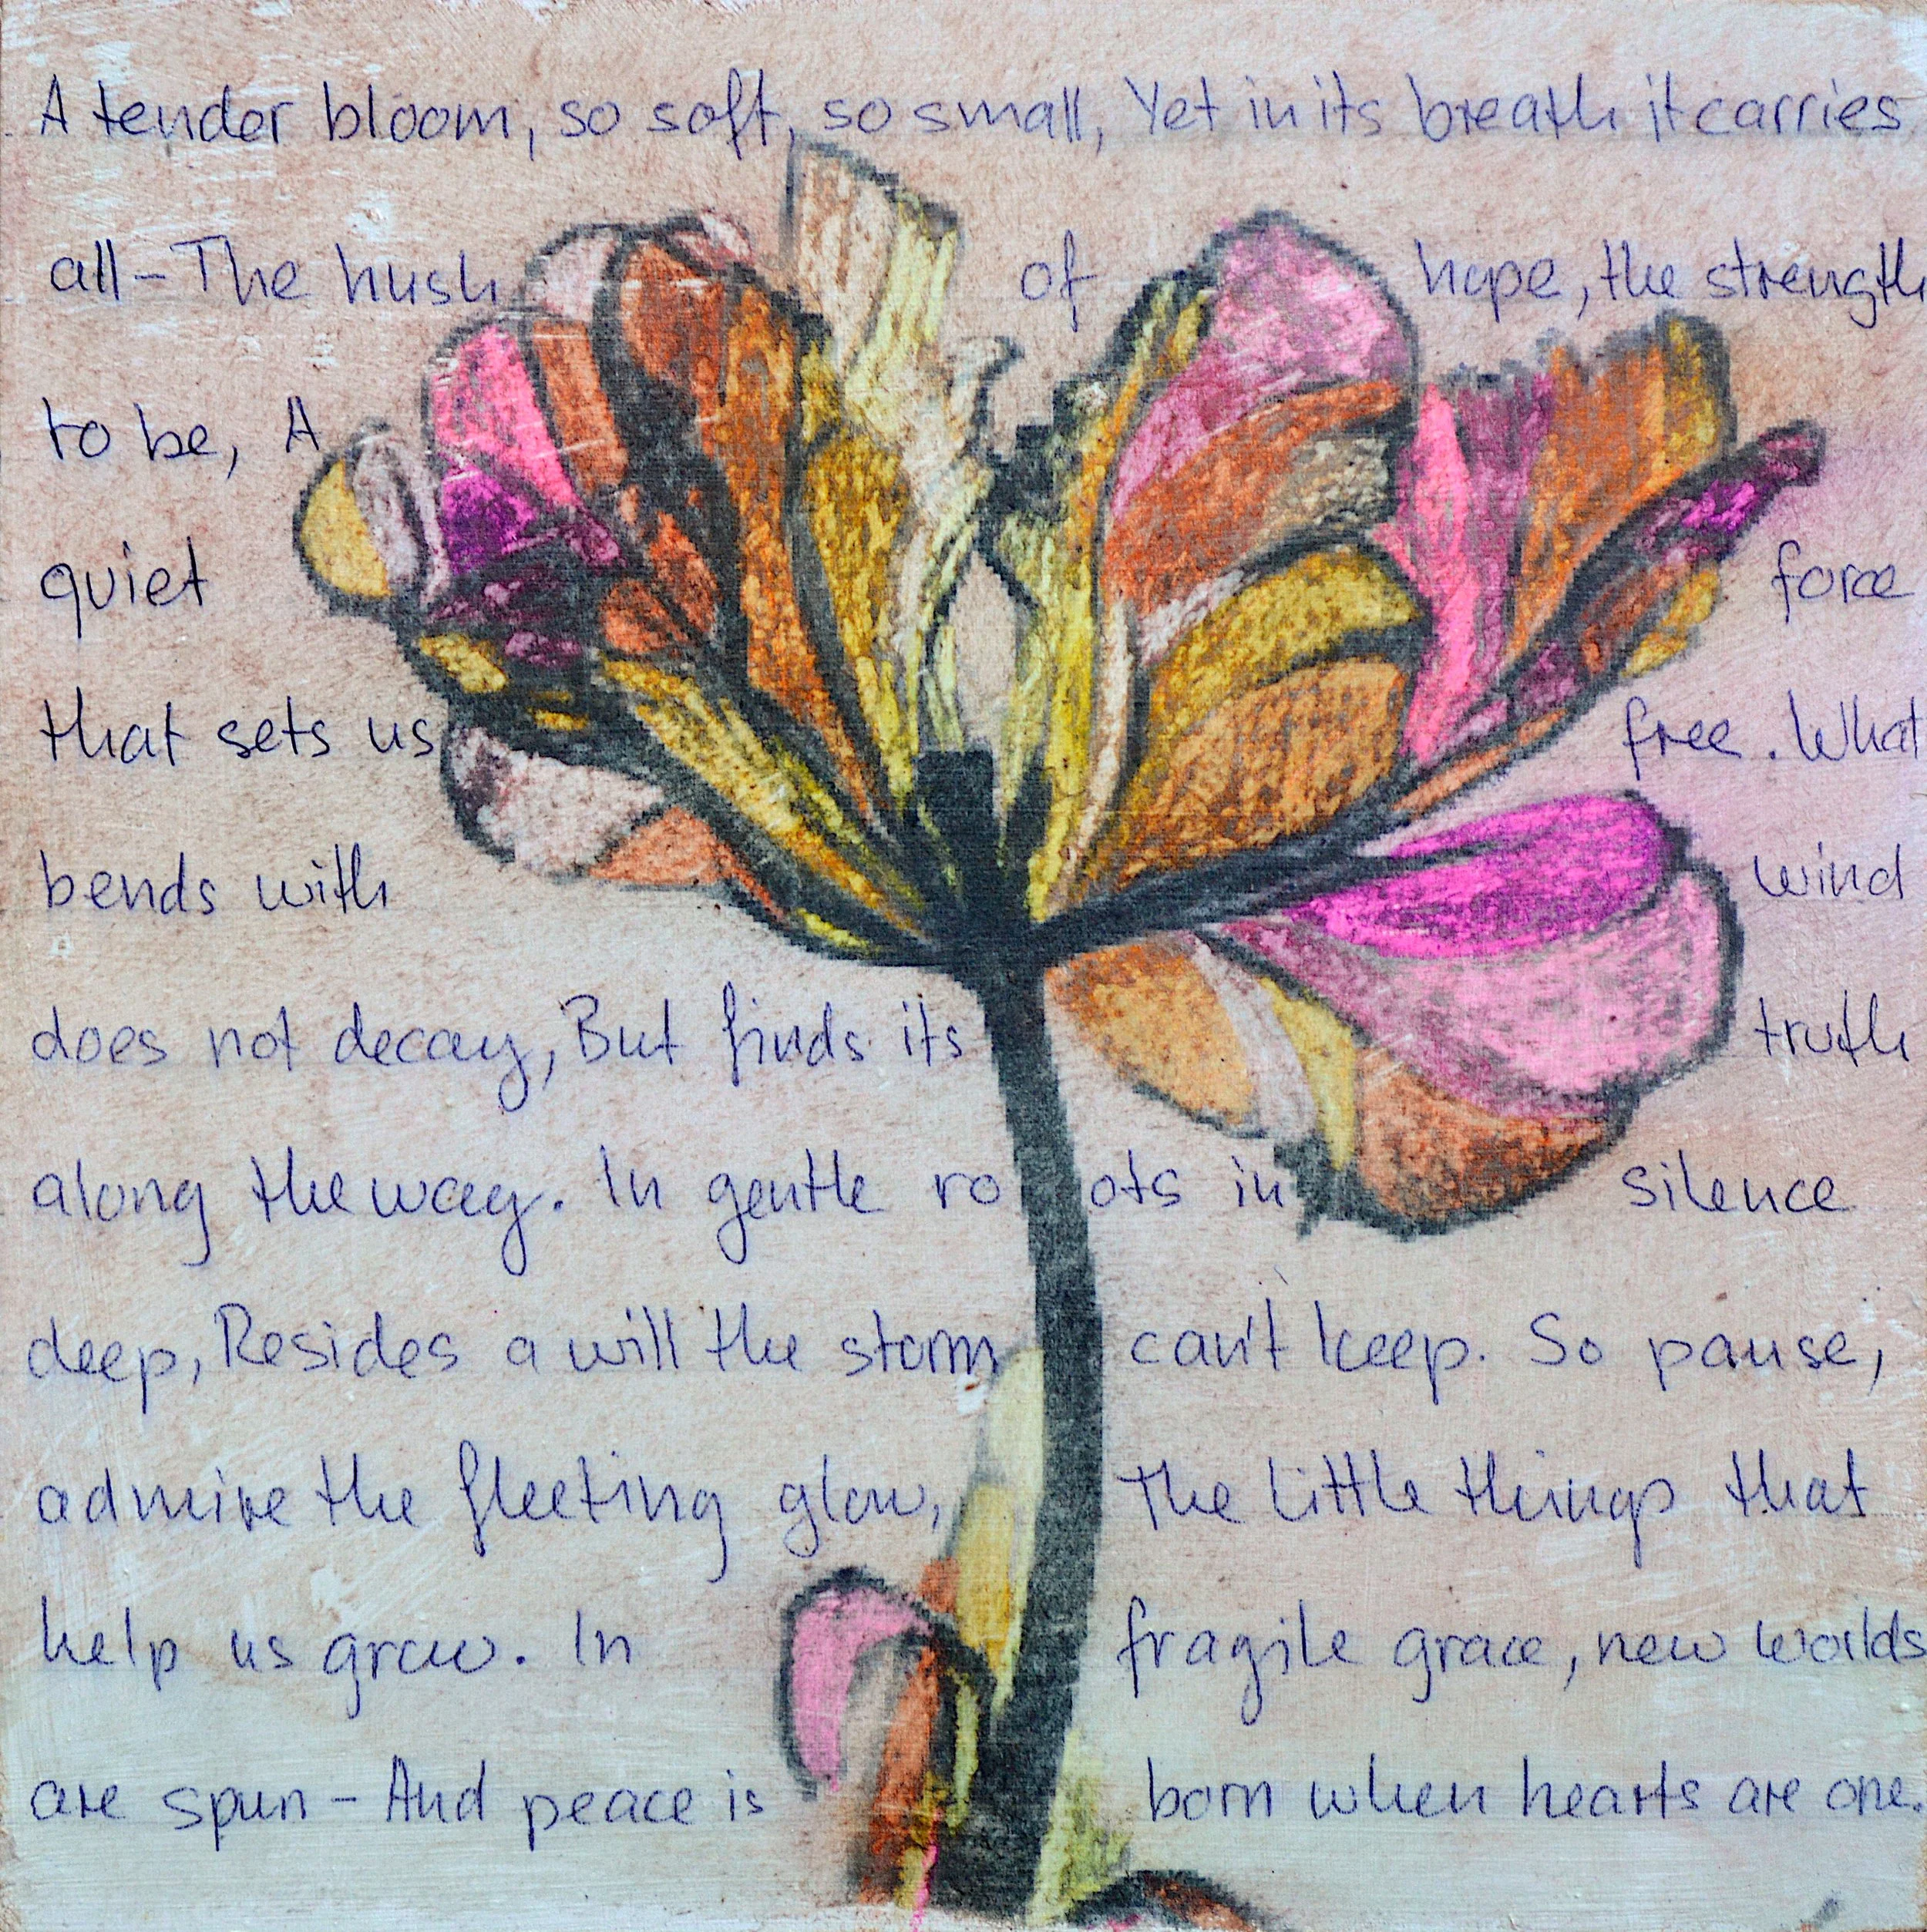 A tender bloom, so soft, so small, Yet in its breath it carries
all – The hush of hope, the strength
to be, A
quiet force
that sets us free. What
bends with wind
does not decay, But finds its truth
along the way. In gentle roots in silence
deep, Resides a will the storm can't keep. So pause,
admire the fleeting glow, The little things that
help us grow. In fragile grace, new worlds
are spun – And peace is born when hearts are one.